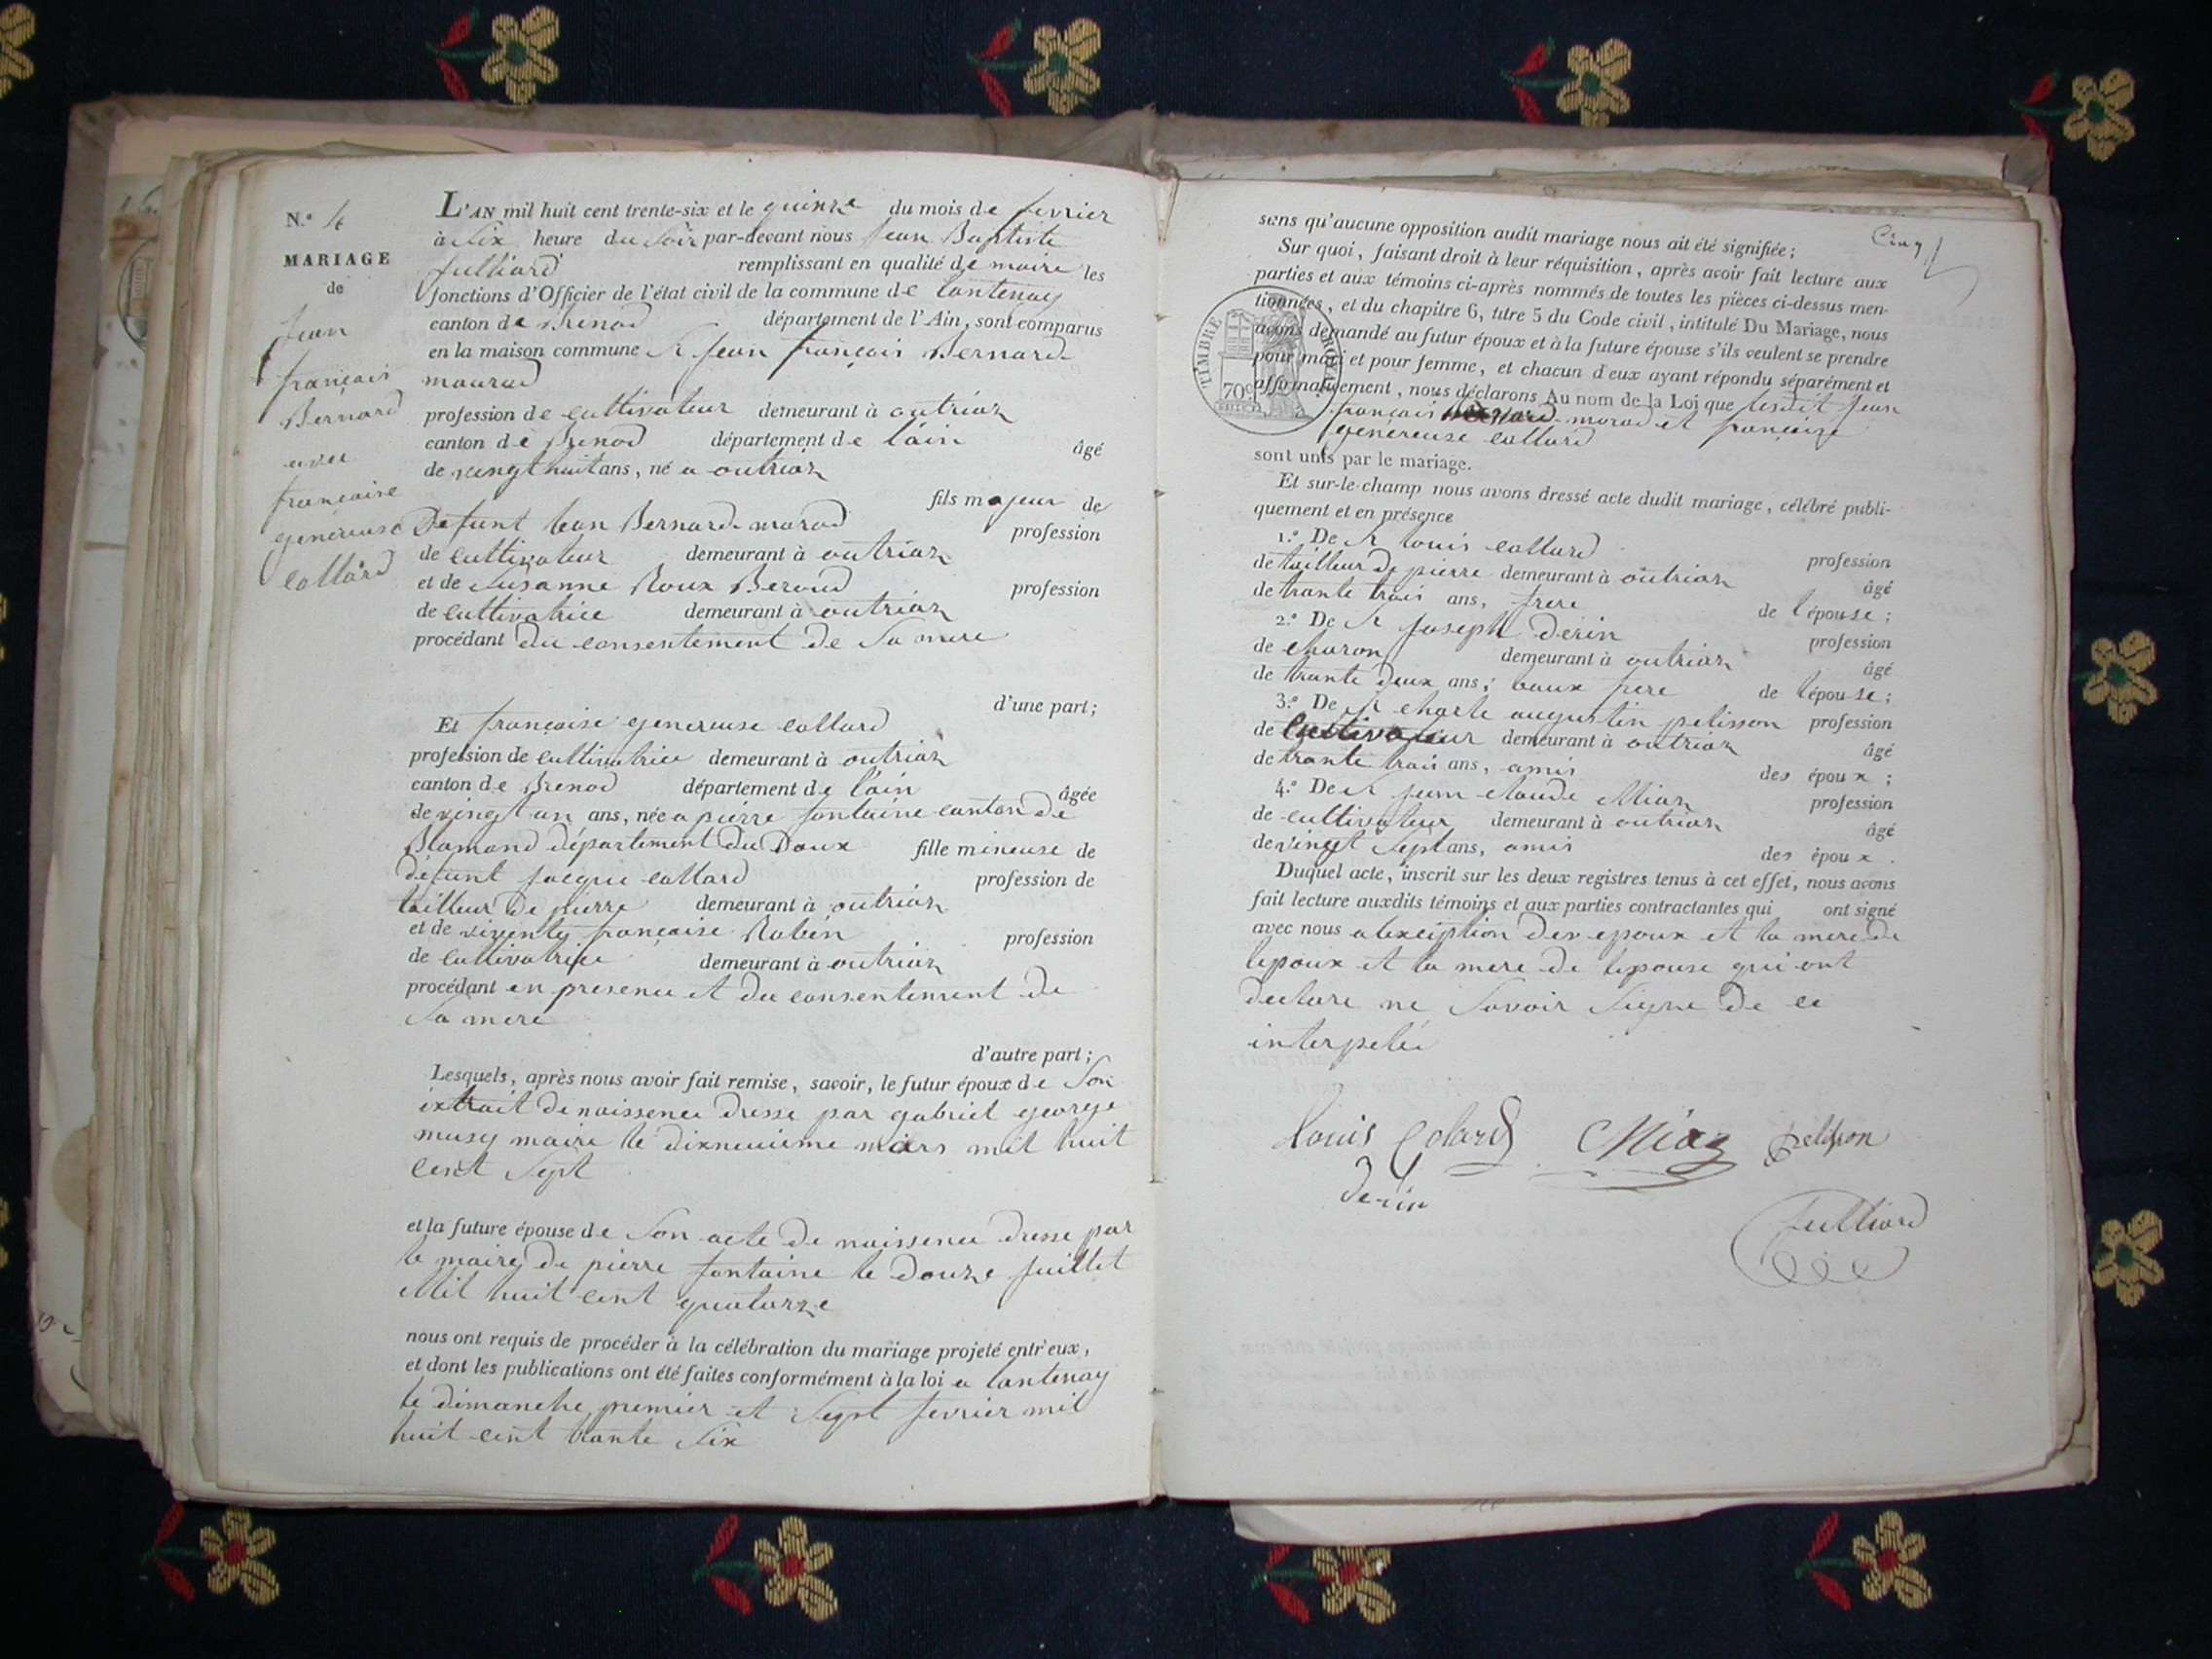 N.º 4
MARIAGE
de
Jean
françois
Bernard
avec
françoise
genereuse
Collard
L'AN mil huit cent trente-six et le quinze du mois de fevrier
à Six heure du Soir par-devant nous Jean Baptiste
Julliard remplissant en qualité de maire les
fonctions d'Officier de l'état civil de la commune de lantenay
canton de Brenod département de l'Ain, sont comparus
en la maison commune Sr Jean françois Bernard
maurad
profession de cultivateur demeurant à outriaz
canton de Brenod département de l'ain âgé
de vingt huit ans, né a outriaz
fils majeur de
Defunt Jean Bernard morad profession
de cultivateur demeurant à outriaz
et de Susanne Roux Beroud profession
de cultivatrice demeurant à outriaz
procédant du consentement de Sa mere
d'une part;
Et françoise genereuse collard
profession de cultivatrice demeurant à outriaz
canton de Brenod département de l'ain âgée
de vingt un ans, née a pierre fontaine canton de
Blamond département du Doux fille mineuse de
défunt Jacque collard profession de
tailleur de pierre demeurant à outriaz
et de françoise Robin profession
de cultivatrice demeurant à outriaz
procédant en presence et du consentement de
Sa mere
d'autre part;
Lesquels, après nous avoir fait remise, savoir, le futur époux de Son
extrait de naissence dresse par gabriel george
musy maire le dixneuvieme mars mil huit
cent Sept
et la future épouse de Son acte de naissence dresse par
le maire de pierre fontaine le douze juillet
Mil huit cent quatorze
nous ont requis de procéder à la célébration du mariage projeté entr'eux,
et dont les publications ont été faites conformément à la loi a lantenay
le dimanche premier et Sept fevrier mil
huit cent trante Six
Cinq
sans qu'aucune opposition audit mariage nous ait été signifiée;
Sur quoi, faisant droit à leur réquisition, après avoir fait lecture aux
parties et aux témoins ci-après nommés de toutes les pièces ci-dessus men-
tionnées, et du chapitre 6, titre 5 du Code civil, intitulé Du Mariage, nous
avons demandé au futur époux et à la future épouse s'ils veulent se prendre
pour mari et pour femme, et chacun d'eux ayant répondu séparément et
affirmativement, nous déclarons Au nom de la Loi que lesdit Jean
françois Bernard morad et françoise
genéreuse collard
TIMBRE ROYAL
70c
sont unis par le mariage.
Et sur-le-champ nous avons dressé acte dudit mariage, célébré publi-
quement et en présence
1.º De Sr louis collard profession
de tailleur de pierre demeurant à outriaz âgé
de trante trois ans, frere de l'épouse;
2.º De Sr Joseph derin profession
de charon demeurant à outriaz âgé
de trante deux ans; baux frere de l'épouse;
3.º De Sr charle augustin pelisson profession
de Cultivateur demeurant à outriaz âgé
de trante trois ans, amis des époux;
4.º De Sr jean claude Miaz profession
de cultivateur demeurant à outriaz âgé
de vingt Sept ans, amis des époux.
Duquel acte, inscrit sur les deux registres tenus à cet effet, nous avons
fait lecture auxdits témoins et aux parties contractantes qui ont signé
avec nous a lexeption des epoux et la mere de
lepoux et la mere de lepouse qui ont
declare ne Savoir Signe de ce
interpelée
louis Colard Miaz pelisson
derin
Julliard